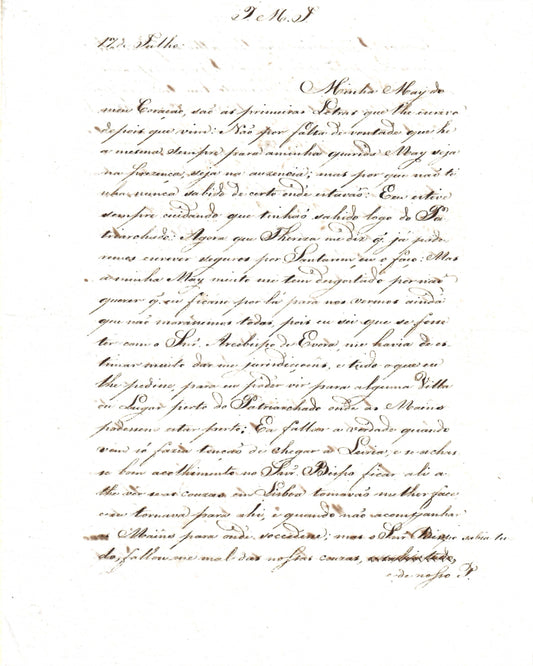 J. M. J.
12 de Julho.
Minha May do
meu Coração, são as primeiras Letras que lhe escrevo
depois que vim: Não por falta de vontade que hé
a mesma, sempre para a minha querida May seja
na prezença, seja na auzencia; mas por que não ti
nha nunca sabido de certo onde estavão: Eu estive
sempre cuidando que tinhão sahido logo do Pa
triarchado: Agora que Thereza me diz q. já pode
remos escrever seguros por Santarem eu o faço: Mas
a minha May muito me tem desgostado por não
querer q. eu ficasse por lá para nos vermos ainda
que não morássimos todas, pois eu sei que se fosse
ter com o Snr. Arcebispo de Evora me havia de es
timar muito dar me jurisdicçoens, e tudo o que eu
lhe pedisse, para eu poder vir para alguma Villa
ou Lugar perto do Patriarchado onde as Mains
podessem estar perto: Eu fallo a verdade quando
vim só fazia tenção de chegar a Leiria, e se achas
se bom acolhimento no Snr. Bispo ficar ali a
the ver se as couzas em Lisboa tomavão melhor face
e eu tornava para ahi, e quando não acompanhar
as Mains para onde soccedesse; mas o Snr. Bispo sabia tu
do, fallou me mal das nossas couzas,
e do nosso P.